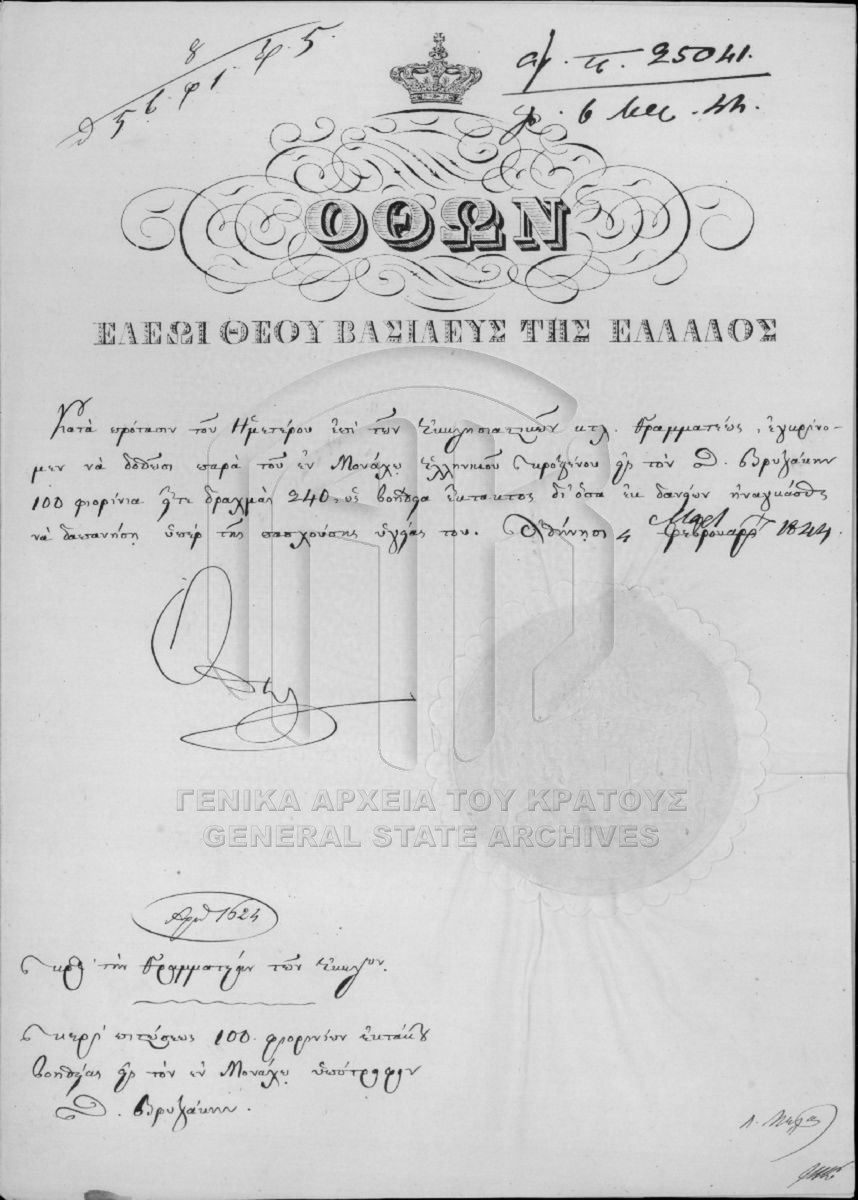 αρ. π. 25041.
ΟΘΩΝ
ΕΛΕΩΙ ΘΕΟΥ ΒΑΣΙΛΕΥΣ ΤΗΣ ΕΛΛΑΔΟΣ
Κατὰ πρότασιν τοῦ Ἡμετέρου ἐπὶ τῶν Ἐκκλησιαστικῶν κτλ. Γραμματέως, ἐγκρίνο-
μεν νὰ δοθῶσι παρὰ τοῦ ἐν Μονάχῳ Ἑλληνικοῦ Προξένου εἰς τὸν Θ. Βρυζάκην
100 φιορίνια ἤτοι δραχμὰς 240, ὡς βοήθεια ἔκτακτος δι' ὅσα ἐκ δανείων ἠναγκάσθη
νὰ δαπανήση ὑπὲρ τῆς πασχούσης ὑγείας του. Ἀθήνησι 4 Φεβρουαρ 1844.
Μαρτ
Ὄθων
ΓΕΝΙΚΑ ΑΡΧΕΙΑ ΤΟΥ ΚΡΑΤΟΥΣ
GENERAL STATE ARCHIVES
Αριθ 1624
Πρὸς τὴν Γραμματείαν τῶν Ἐκκλων.
Περὶ πιστώσεως 100 φιορινίων ἐκτάκτου
βοηθείας εἰς τὸν ἐν Μονάχῳ ὑπότροφον
Θ. Βρυζάκην.